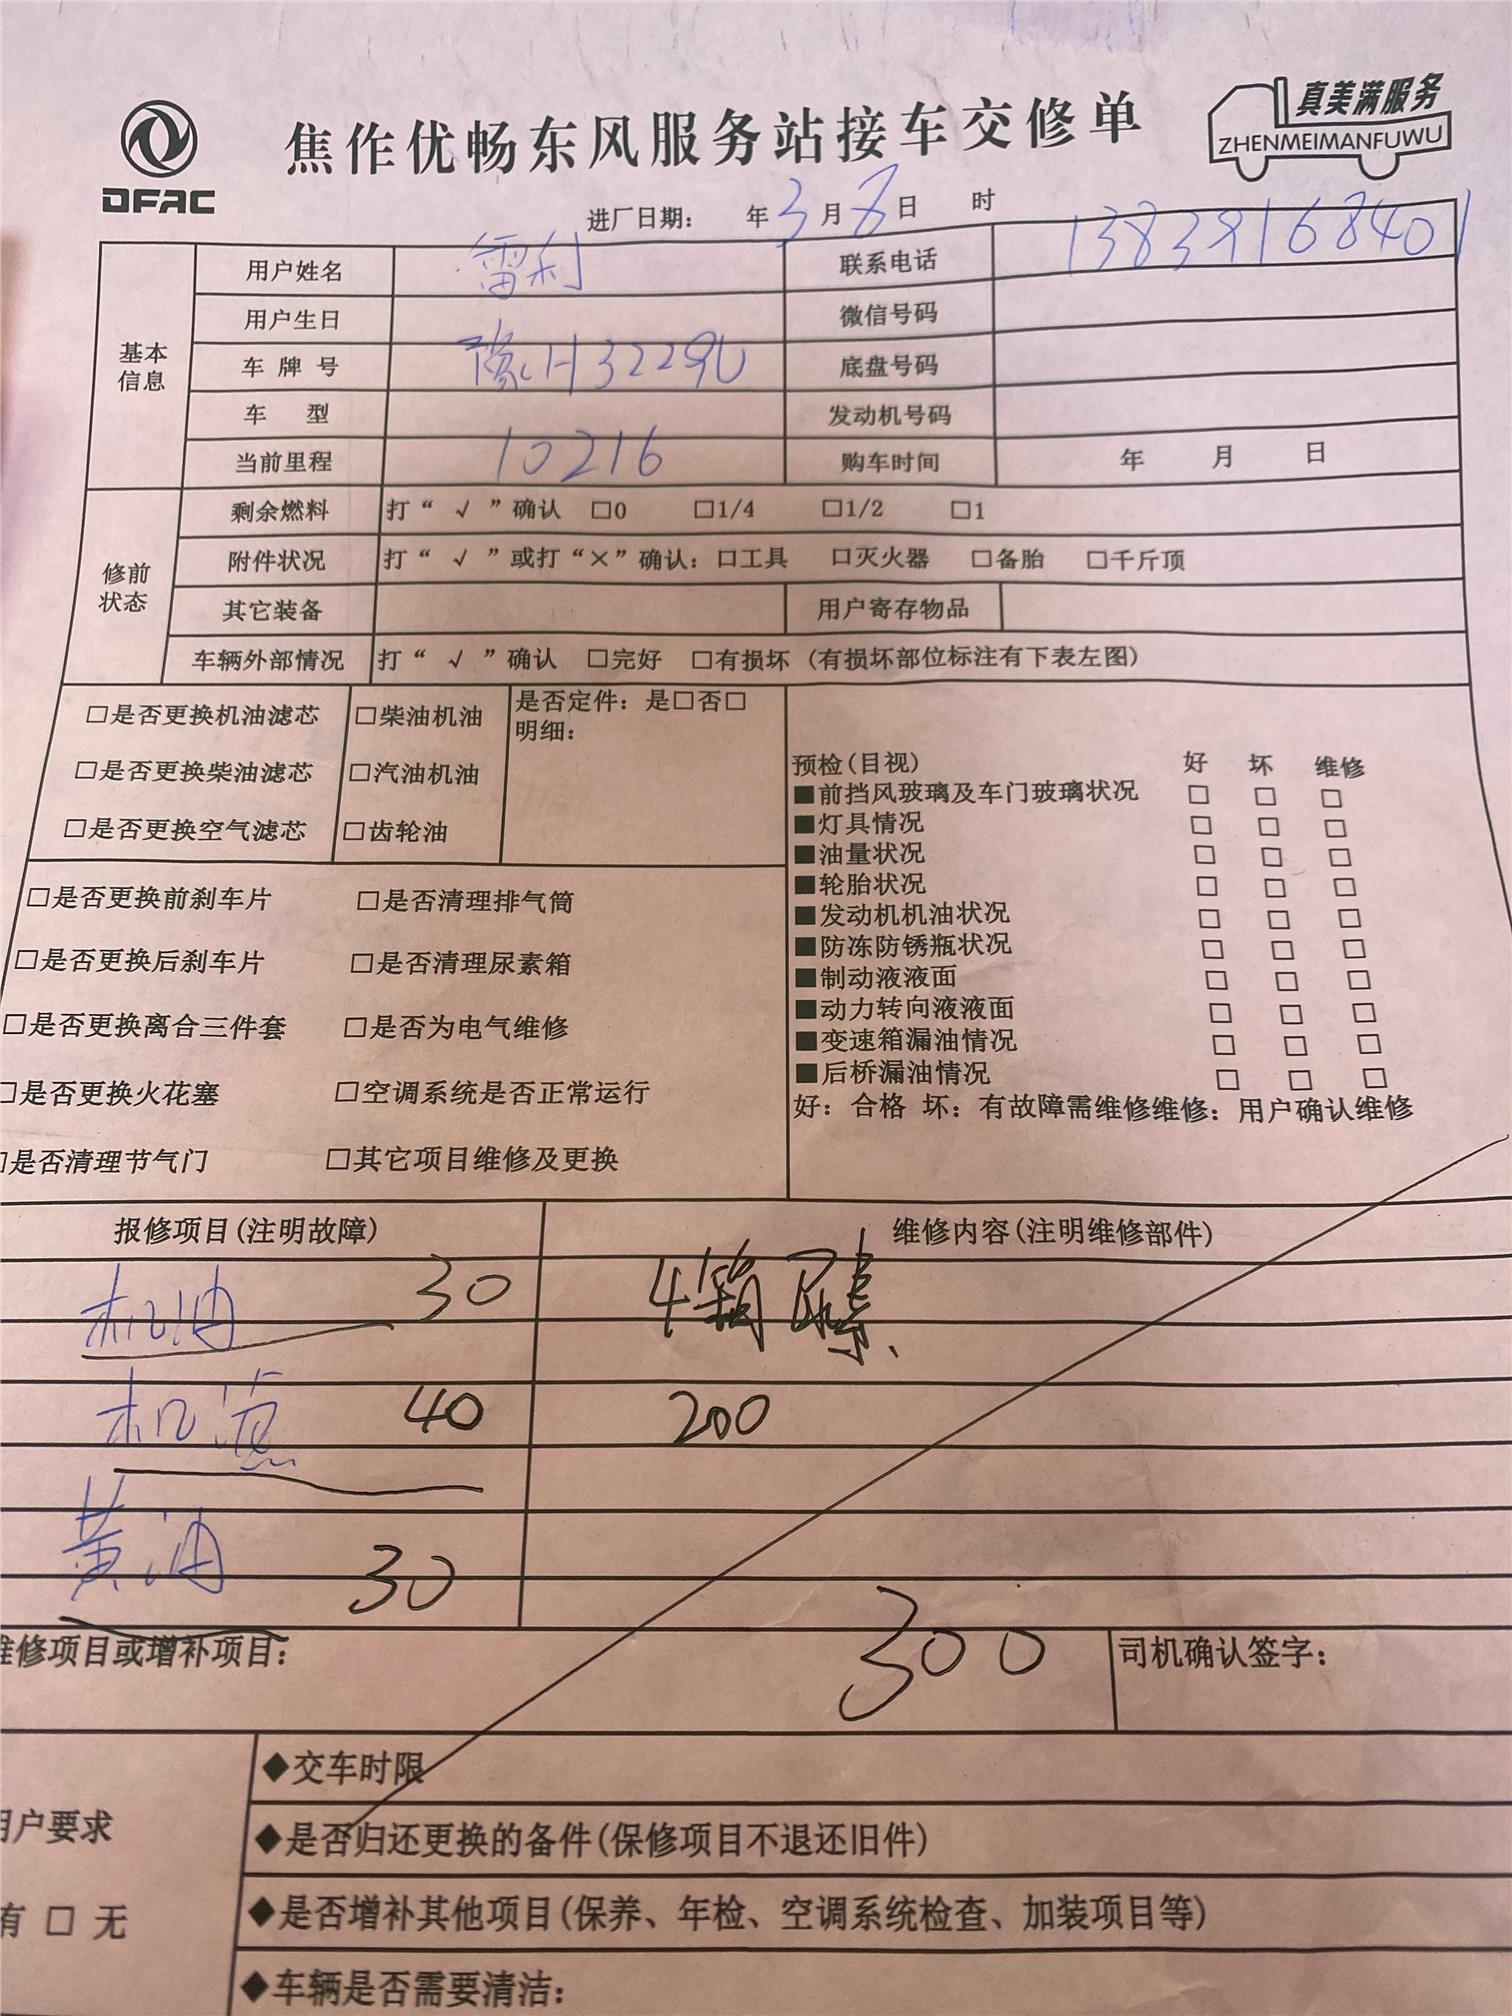 DFAC
焦作优畅东风服务站接车交修单
真美满服务
ZHENMEIMANFUWU
进厂日期： 年3月8日 时
基本信息
用户姓名 雷利 联系电话 13839168401
用户生日 微信号码
车牌号 豫H3229U 底盘号码
车 型 发动机号码
当前里程 10216 购车时间 年 月 日
修前状态
剩余燃料 打“ √ ”确认 □0 □1/4 □1/2 □1
附件状况 打“ √ ”或打“×”确认：□工具 □灭火器 □备胎 □千斤顶
其它装备 用户寄存物品
车辆外部情况 打“ √ ”确认 □完好 □有损坏 (有损坏部位标注有下表左图)
□是否更换机油滤芯 □柴油机油 是否定件：是□否□
明细：
□是否更换柴油滤芯 □汽油机油
□是否更换空气滤芯 □齿轮油
□是否更换前刹车片 □是否清理排气筒
□是否更换后刹车片 □是否清理尿素箱
□是否更换离合三件套 □是否为电气维修
□是否更换火花塞 □空调系统是否正常运行
□是否清理节气门 □其它项目维修及更换
预检(目视) 好 坏 维修
■前挡风玻璃及车门玻璃状况 □ □ □
■灯具情况 □ □ □
■油量状况 □ □ □
■轮胎状况 □ □ □
■发动机机油状况 □ □ □
■防冻防锈瓶状况 □ □ □
■制动液液面 □ □ □
■动力转向液液面 □ □ □
■变速箱漏油情况 □ □ □
■后桥漏油情况 □ □ □
好：合格 坏：有故障需维修维修：用户确认维修
报修项目(注明故障) 维修内容(注明维修部件)
机油 30 4箱尿素
机滤 40 200
黄油 30
维修项目或增补项目： 300 司机确认签字：
用户要求
有 □ 无
◆交车时限
◆是否归还更换的备件(保修项目不退还旧件)
◆是否增补其他项目(保养、年检、空调系统检查、加装项目等)
◆车辆是否需要清洁：